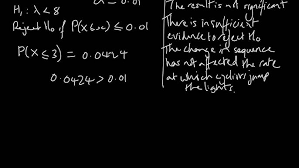 H₁ : λ < 8
Reject H₀ if P(X≤x) ≤ 0.01
P(X ≤ 3) = 0.0424
0.0424 > 0.01
The result is not significant
There is insufficient
evidence to reject H₀
The change in sequence
has not affected the rate
at which cyclists jump
the lights.